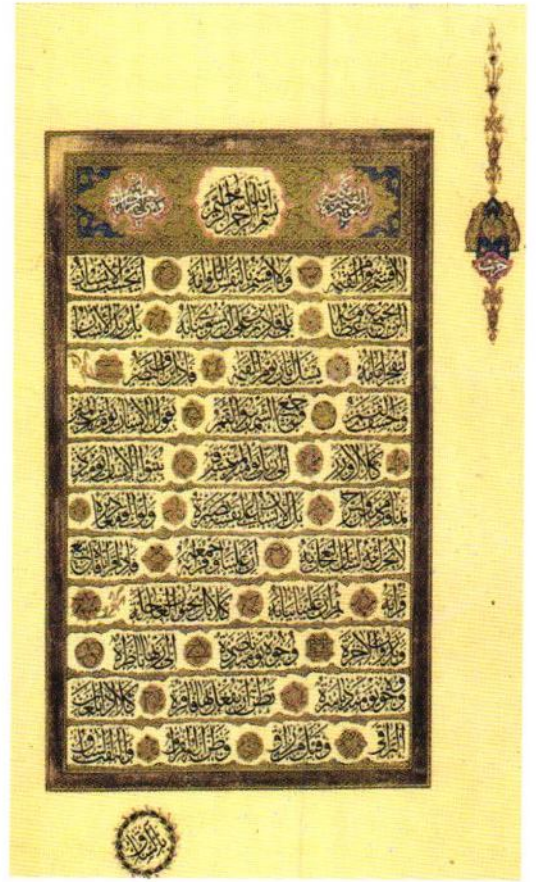 بسم الله الرحمن الرحيم
حزب
لا اقسم بيوم القيمة ولا اقسم بالنفس اللوامة ايحسب الانسان
الن نجمع عظامه بلى قادرين على ان نسوي بنانه بل يريد الانسان
ليفجر امامه يسئل ايان يوم القيمة فاذا برق البصر
وخسف القمر وجمع الشمس والقمر يقول الانسان يومئذ اين المفر
كلا لا وزر الى ربك يومئذ المستقر ينبؤا الانسان يومئذ
بما قدم واخر بل الانسان على نفسه بصيرة ولو القى معاذيره
لا تحرك به لسانك لتعجل به ان علينا جمعه وقرانه فاذا قراناه فاتبع
قرانه ثم ان علينا بيانه كلا بل تحبون العاجلة
وتذرون الاخرة وجوه يومئذ ناضرة الى ربها ناظرة
ووجوه يومئذ باسرة تظن ان يفعل بها فاقرة كلا اذا بلغت
التراقي وقيل من راق وظن انه الفراق والتفت الساق